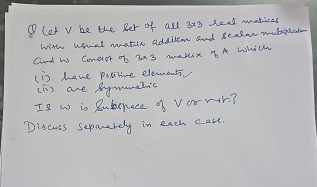 Q Let V be the Set of all 3x3 real matrices
with usual matrix addition and Scalar multiplication
and W Consist of 3x3 matrix of A which
(i) have Positive elements,
(ii) are Symmetric
Is W is Subspace of V or not?
Discuss Separately in each Case.